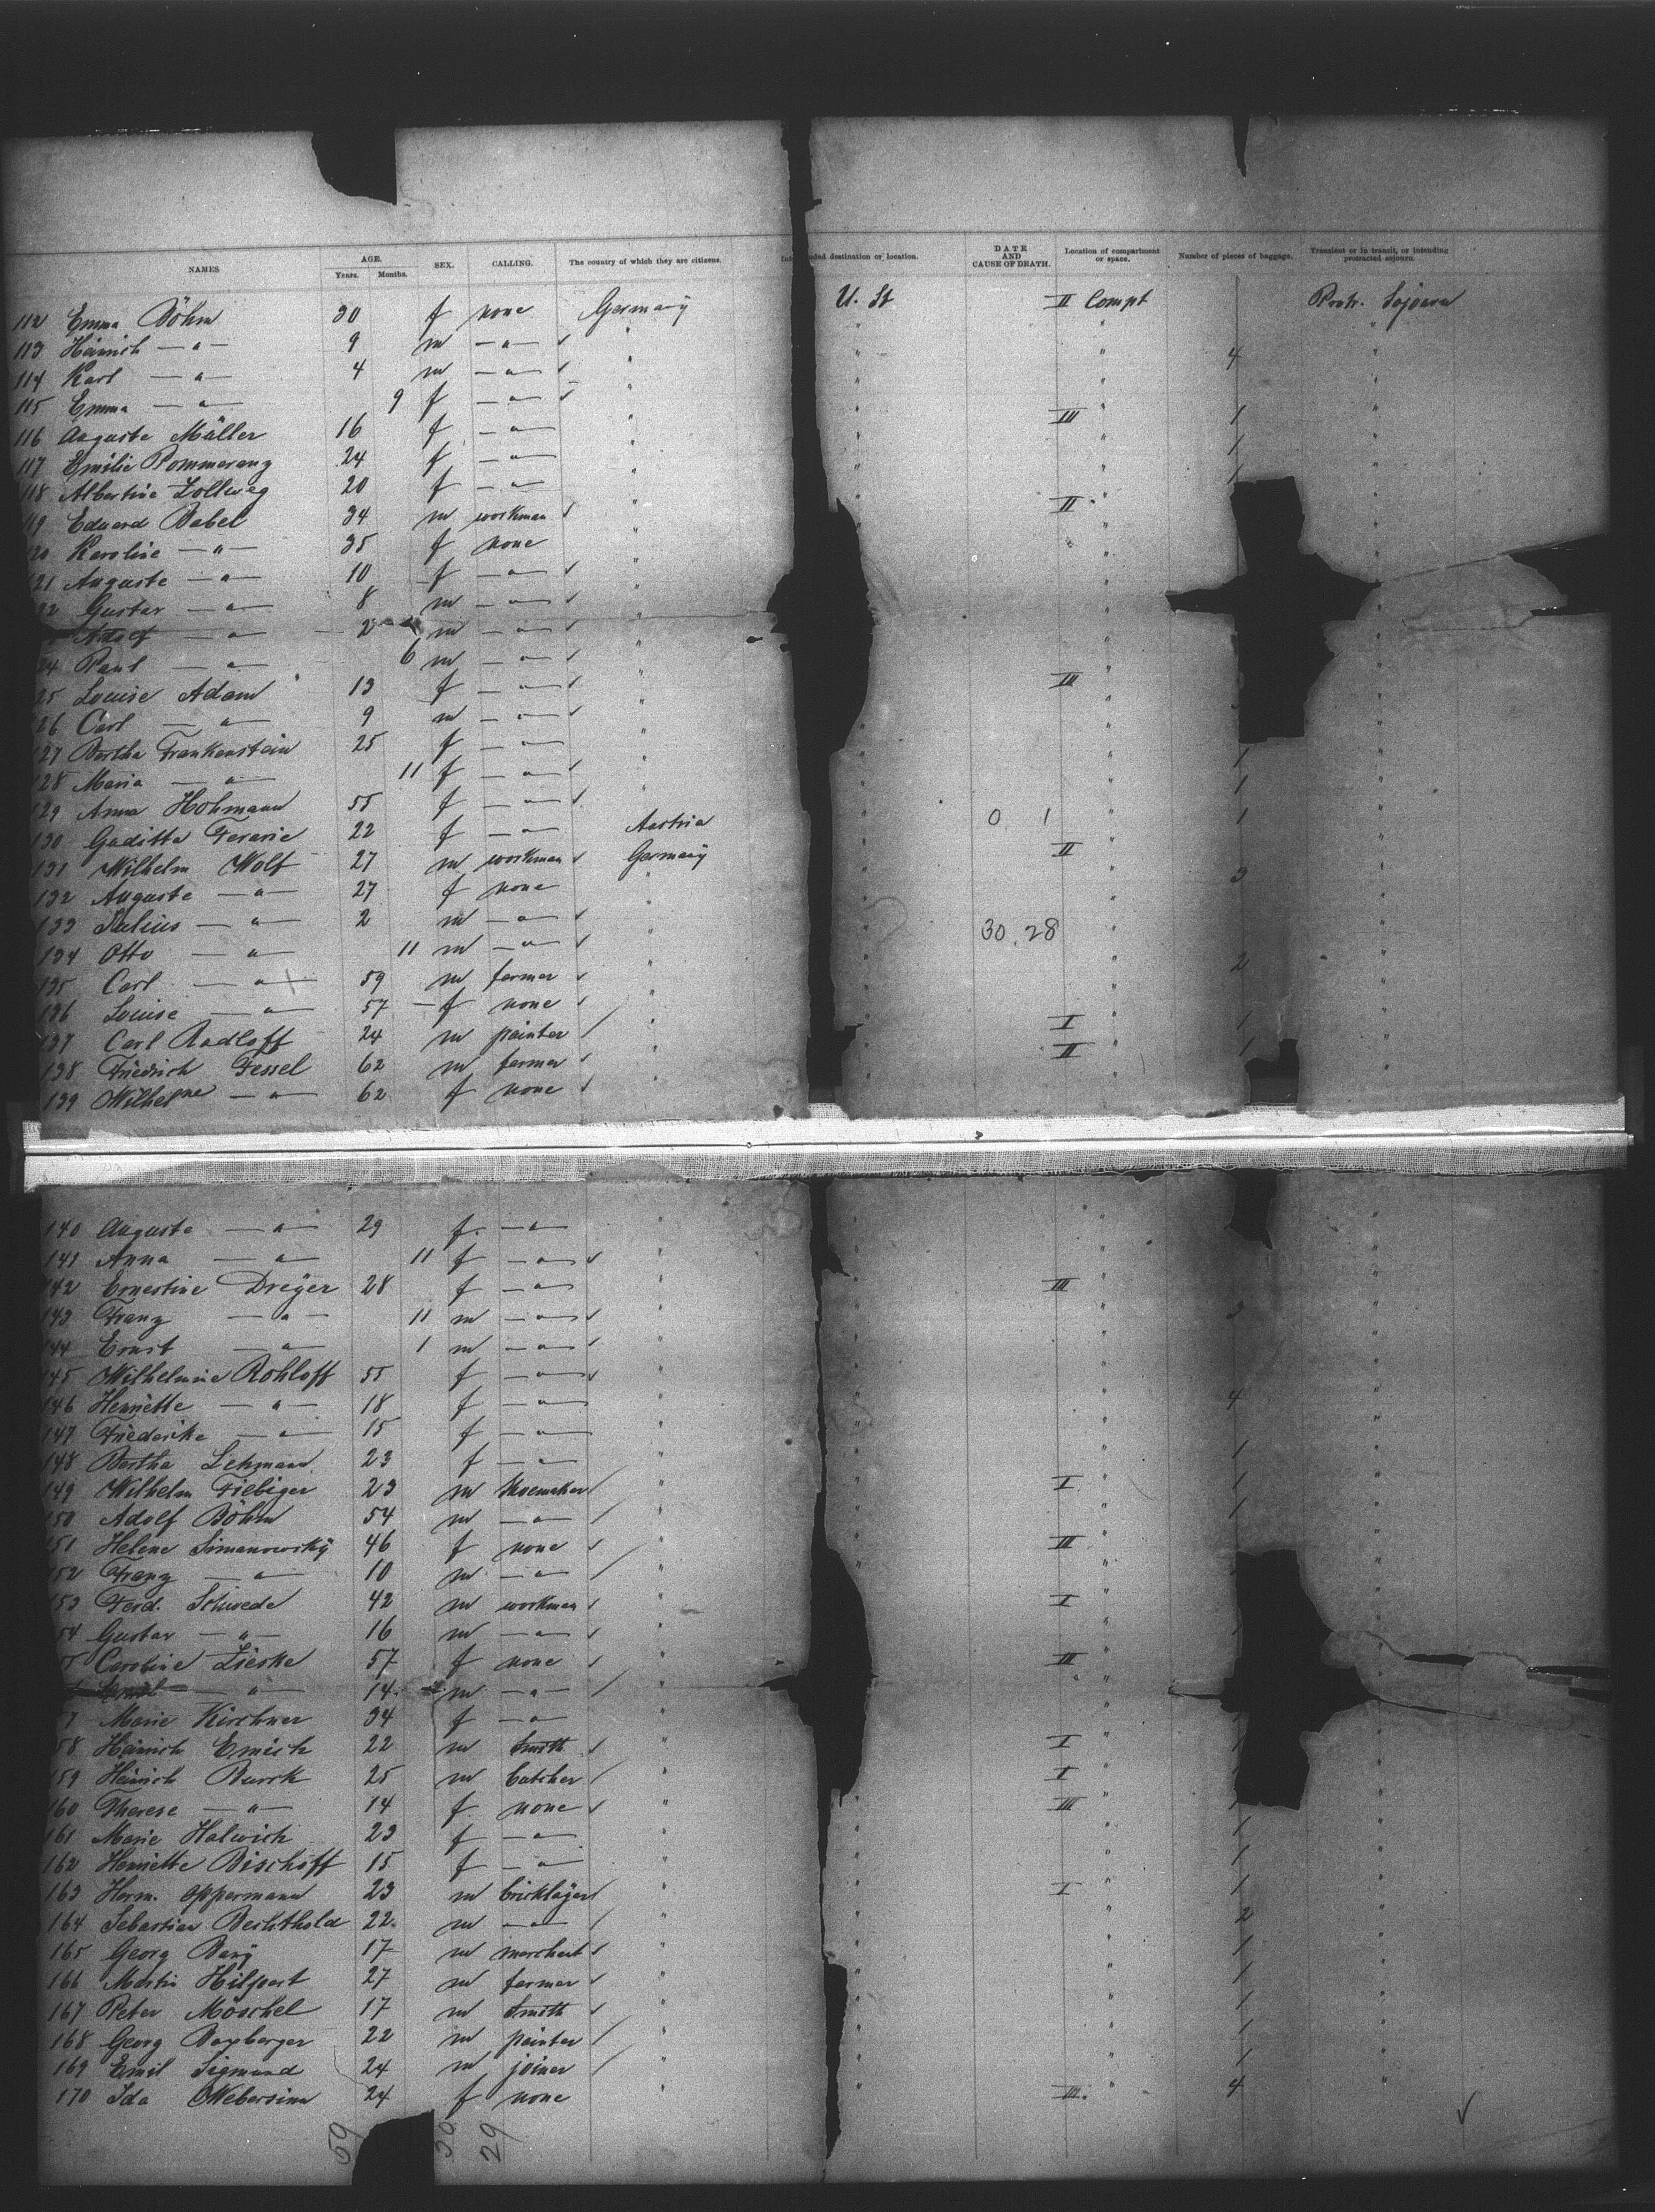 NAMES AGE. Years. Months. SEX. CALLING. The country of which they are citizens. ded destination or location. DATE AND CAUSE OF DEATH. Location of compartment or space. Number of pieces of baggage. Transient or in transit, or intending protracted sojourn.
112 Emma Böhm 30 f none Germany U. St II Compt Protr. Sojourn
113 Heinrich —"— 9 m —"— " " " 4 "
114 Karl —"— 4 m —"— " " " "
115 Emma —"— 9 f —"— " " " "
116 Auguste Müller 16 f —"— " " III " 1 "
117 Emilie Pommerenz 24 f —"— " " " 1 "
118 Albertine Zollweg 20 f —"— " " " 1 "
119 Eduard Babel 34 m workman " " II " "
120 Karoline —"— 35 f none " " " "
121 Auguste —"— 10 f —"— " " " "
22 Gustav —"— 8 m —"— " " " "
Adolf —"— 2 m —"— " " " "
24 Paul —"— 6 m —"— " " " "
25 Louise Adam 13 f —"— " " III " "
26 Carl —"— 9 m —"— " " " "
127 Bertha Frankenstein 25 f —"— " " " 1 "
128 Maria —"— 11 f —"— " " " 1 "
129 Anna Hohmann 55 f —"— " " 0 1 " 1 "
130 Gaditta Ferarie 22 f —"— Austria " " "
131 Wilhelm Wolf 27 m workman Germany " II " 3 "
132 Auguste —"— 27 f none " " " "
133 Julius —"— 2 m —"— " " 30.28 " "
134 Otto —"— 11 m —"— " " " 2 "
135 Carl —"— 59 m farmer " " " "
136 Louise —"— 57 f none " " " "
137 Carl Radloff 24 m painter " " I " 1 "
138 Friedrich Fessel 62 m farmer " " II " 1 "
139 Wilhelne —"— 62 f none " " " "
140 Auguste —"— 29 f. —"— " " " "
141 Anna —"— 11 f —"— " " " "
142 Ernestine Dreÿer 28 f —"— " " III " "
143 Franz —"— 11 m —"— " " " 3 "
144 Ernst —"— 1 m —"— " " " "
145 Wilhelmine Rohloff 55 f —"— " " " "
146 Henriette —"— 18 f —"— " " " 4 "
147 Friederike —"— 15 f —"— " " " "
148 Bertha Lehmann 23 f —"— " " " 1 "
149 Wilhelm Fiebiger 23 m shoemaker " " I " 1 "
150 Adolf Böhm 54 m —"— " " " 1 "
151 Helene Simanowskÿ 46 f none " " III " "
152 Franz —"— 10 m —"— " " " "
153 Ferd. Schwede 42 m workman " " I " "
54 Gustav —"— 16 m —"— " " " "
Caroline Lieske 57 f none " " III " "
Emil —"— 14 m —"— " " " "
7 Marie Kirchner 34 f —"— " " " "
58 Heinrich Emich 22 m Smith " " I " "
159 Heinrich Burck 25 m butcher " " I " "
160 Therese —"— 14 f none " " III " "
161 Marie Halwich 23 f —"— " " " 1 "
162 Henriette Bischoff 15 f —"— " " " 1 "
163 Herm. Oppermann 23 m bricklayer " " I " 1 "
164 Sebastian Bechthold 22 m —"— " " " 2 "
165 Georg Barÿ 17 m merchant " " " 1 "
166 Martin Hilpert 27 m farmer " " " 1 "
167 Peter Möschel 17 m Smith " " " 1 "
168 Georg Baxberger 22 m painter " " " 1 "
169 Emil Sigmund 24 m joiner " " " 1 "
170 Ida Webersinn 24 f none " III. " 4 "
59 30 29